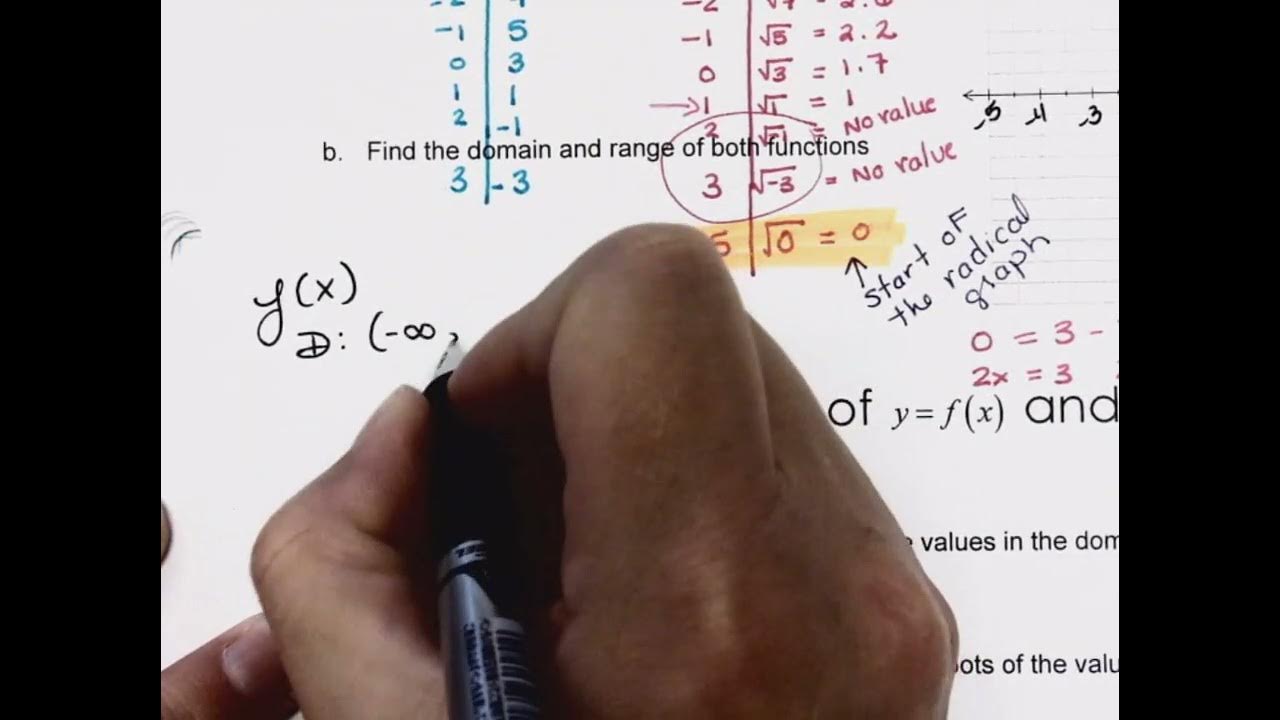 -1 5
0 3
1 1
2 -1
3 -3
-2 √7
-1 √5 = 2.2
0 √3 = 1.7
→ 1 √1 = 1
2 √-1 = No value
3 √-3 = No value
5 √0 = 0
start of
the radical
graph
-5 -4 -3
b. Find the domain and range of both functions
y(x)
D: (-∞,
0 = 3 -
2x = 3
of y = f(x) and
values in the dom
ots of the valu